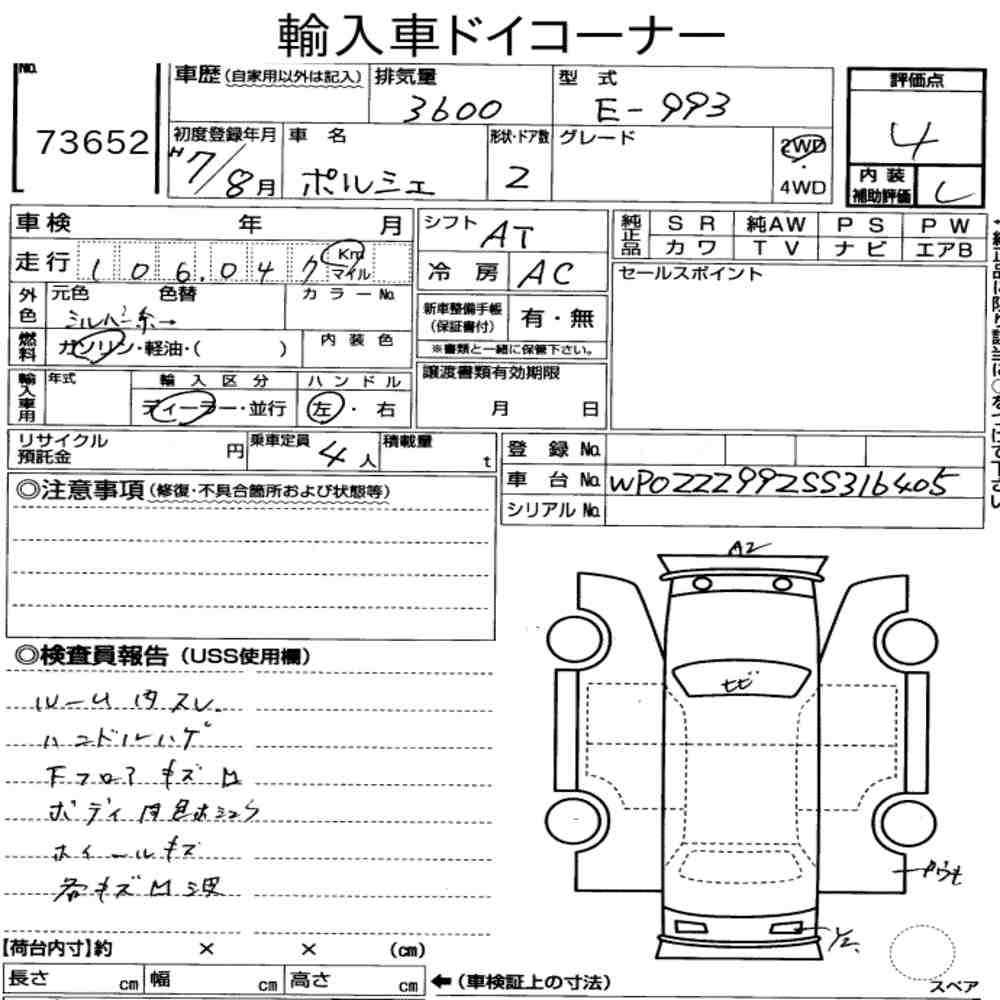 輸入車ドイコーナー
No.
73652
車歴(自家用以外は記入)
排気量
3600
型 式
E-993
初度登録年月
H7/8月
車 名
ポルシェ
形状・ドア数
2
グレード
2WD
・
4WD
評価点
4
内装
補助評価
C
車検 年 月
走行 106.047 Km
マイル
外色
元色 色替
シルバー系→
カラーNo.
燃料
ガソリン・軽油・( )
内装色
輸入車用
年式
輸入区分
ディーラー・並行
ハンドル
左・右
シフト
AT
冷房
AC
新車整備手帳
(保証書付)
有・無
※書類と一緒に保管下さい。
譲渡書類有効期限
月 日
純正品
SR 純AW PS PW
カワ TV ナビ エアB
セールスポイント
リサイクル
預託金
円
乗車定員
4人
積載量
t
登録No.
車台No.
WP0ZZZ99ZSS316405
シリアルNo.
◎注意事項(修復・不具合箇所および状態等)
◎検査員報告(USS使用欄)
ルーム内スレ.
ハンドルハゲ
下フロアキズ凹
ボディ内色ホシュウ
ホイールキズ
各キズ凹
A2
ヒビ
Y2
スペア
【荷台内寸】約 × × (cm)
長さ cm 幅 cm 高さ cm
←(車検証上の寸法)